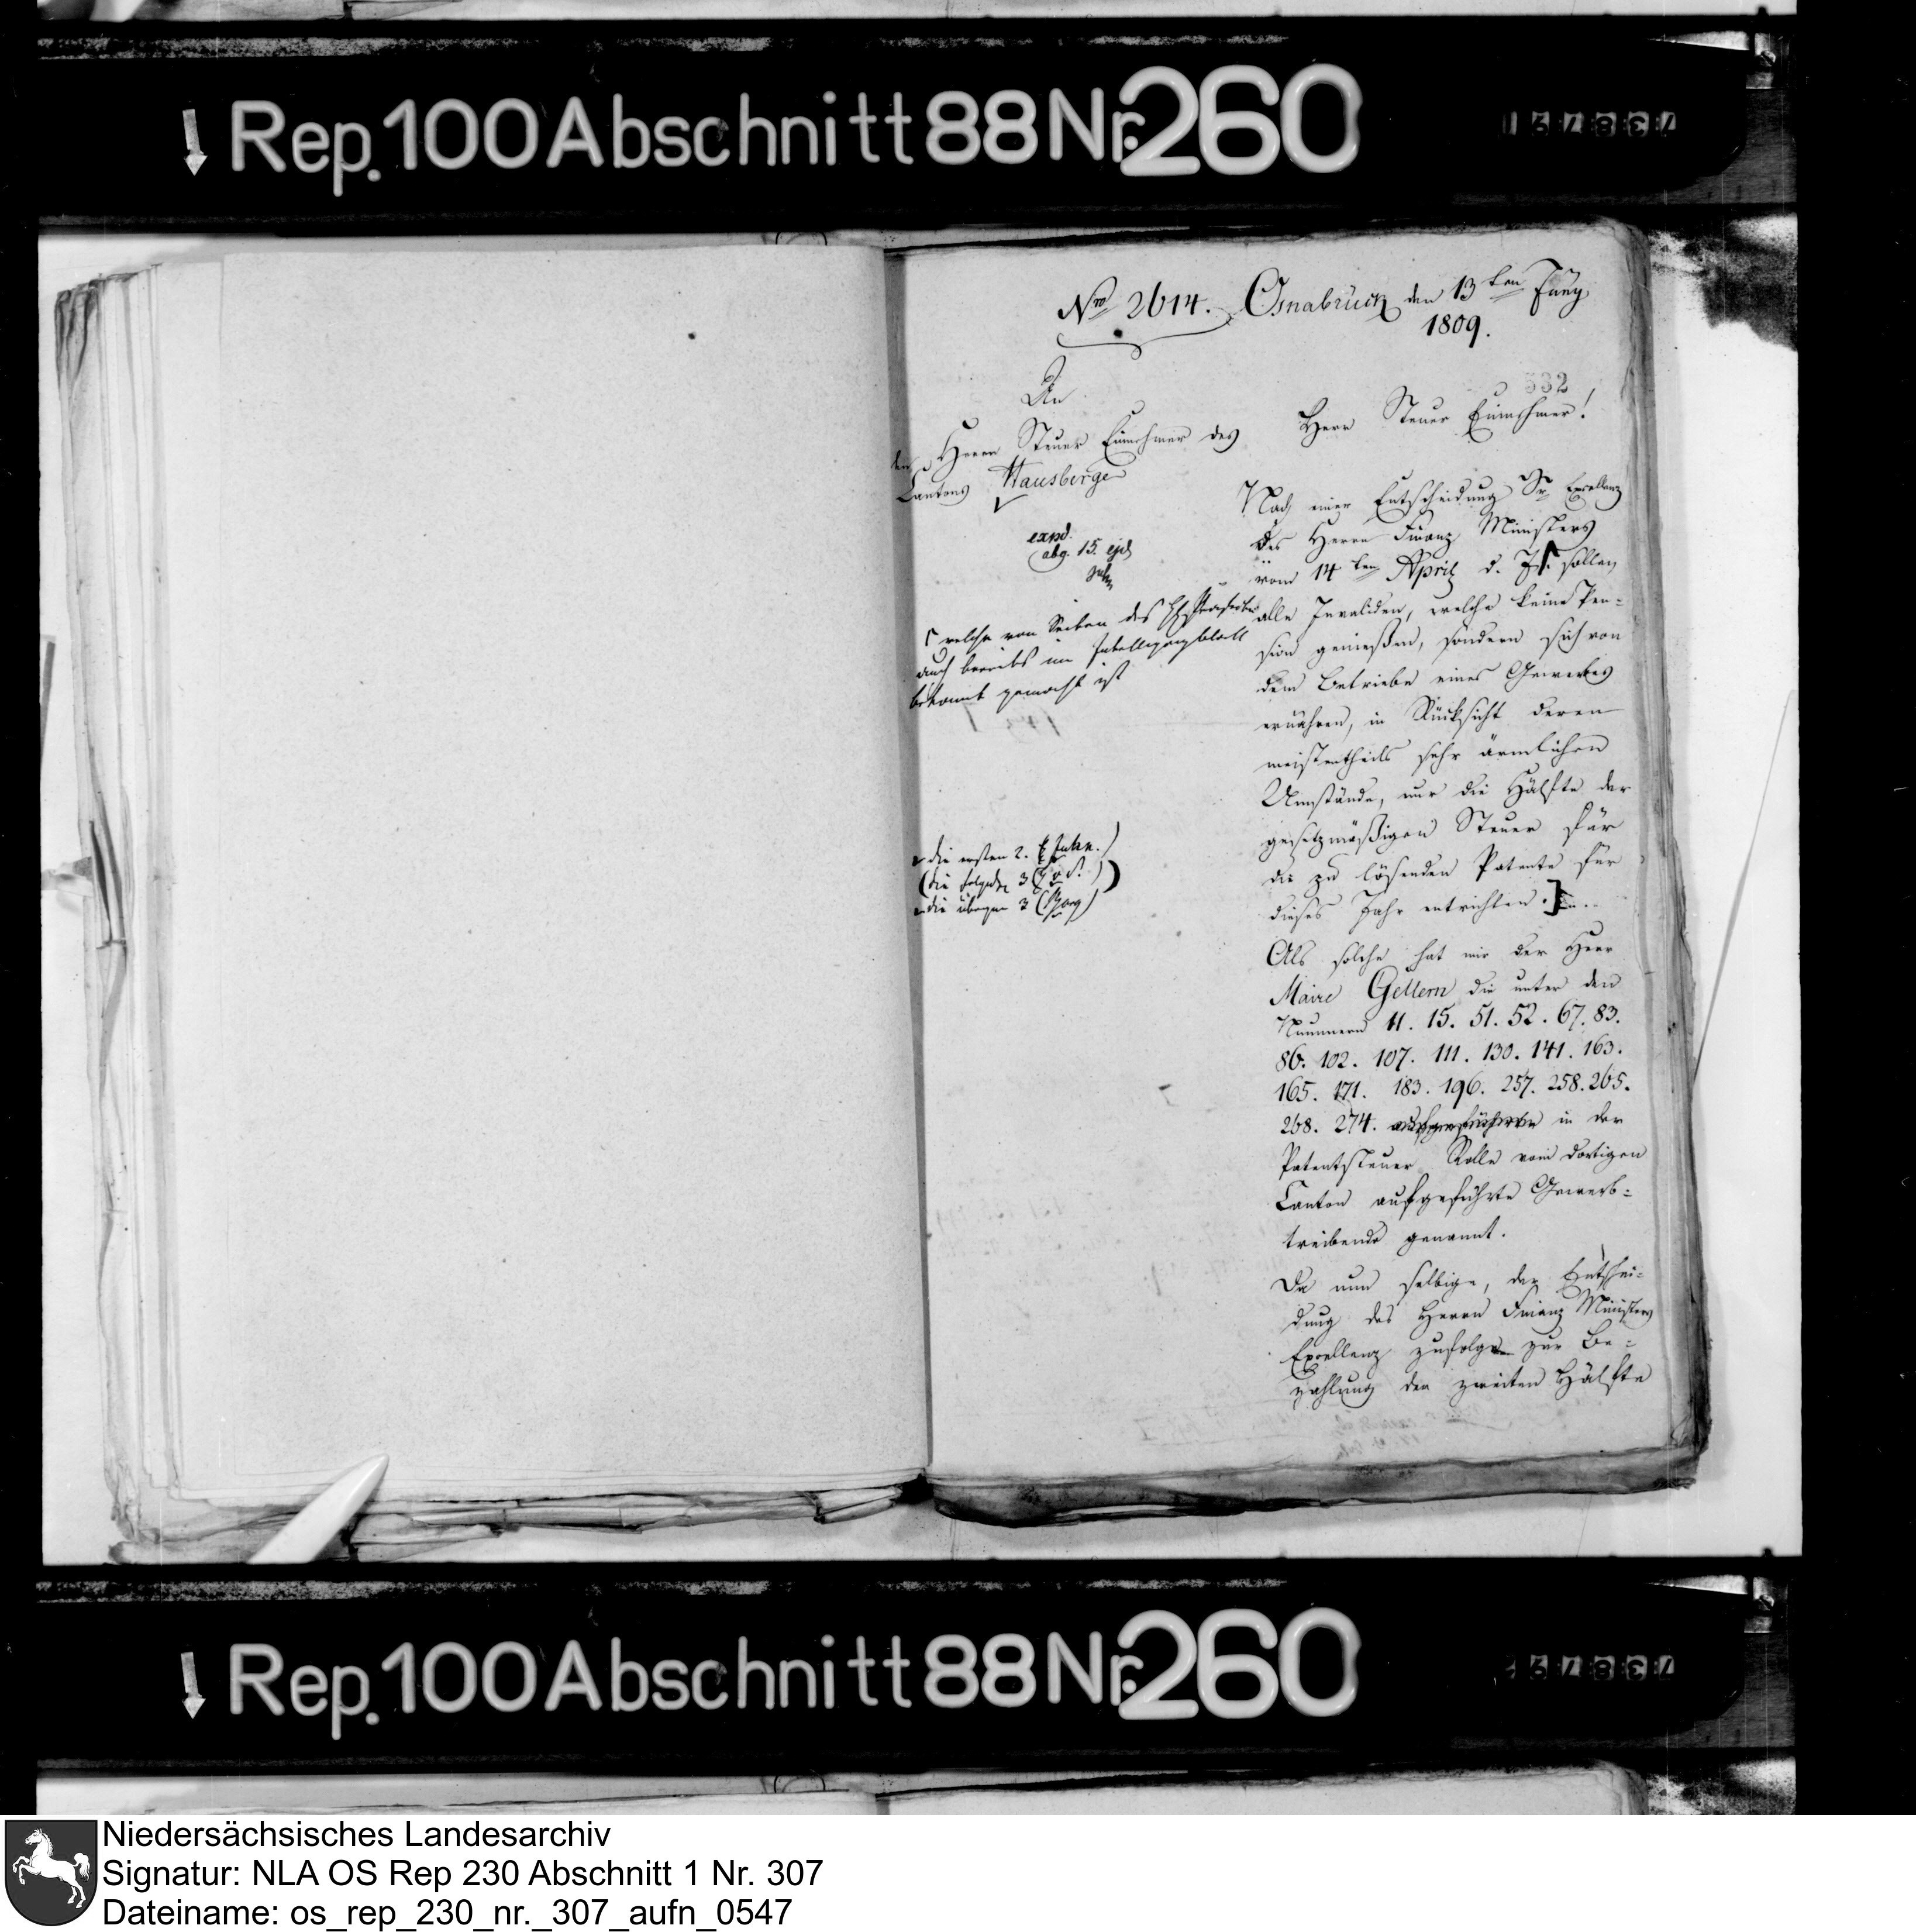 Rep. 100 Abschnitt 88 Nr. 260
Nro 2614. Osnabrück den 13ten Juny
1809.
532
An
den Herrn Steuer Einnehmer des
Cantons Hausberge
expd.
abg. 15. ejd
welche von Seiten des Präfectur
auch bereits im Intelligenzblatt
bekannt gemacht ist
die ersten 2.
(die folgdn 3
die übrigen 3
Herr Steuer Einnehmer!
Nach einer Entscheidung Sr Excellenz
des Herrn Finanz Ministers
vom 14ten April d. Js. sollen
alle Invaliden, welche keine Pen-
sion genießen, sondern sich von
dem Betriebe eines Gewerbes
ernähren, in Rücksicht deren
meistentheils sehr ärmlichen
Umstände, nur die Hälfte der
gesetzmäßigen Steuer für
die zu lösenden Patente für
dieses Jahr entrichten.
Als solche hat mir der Herr
Maire Gellern die unter den
Nummern 11. 15. 51. 52. 67. 83.
86. 102. 107. 111. 130. 141. 163.
165. 171. 183. 196. 257. 258. 265.
268. 274. aufgeführten in der
Patentsteuer Rolle vom dortigen
Canton aufgeführte Gewerb-
treibende genannt.
Da nun selbige, der Entschei-
dung des Herrn Finanz Ministers
Excellenz zufolge zur Be-
zahlung der zweiten Hälfte
Rep. 100 Abschnitt 88 Nr. 260
Niedersächsisches Landesarchiv
Signatur: NLA OS Rep 230 Abschnitt 1 Nr. 307
Dateiname: os_rep_230_nr._307_aufn_0547